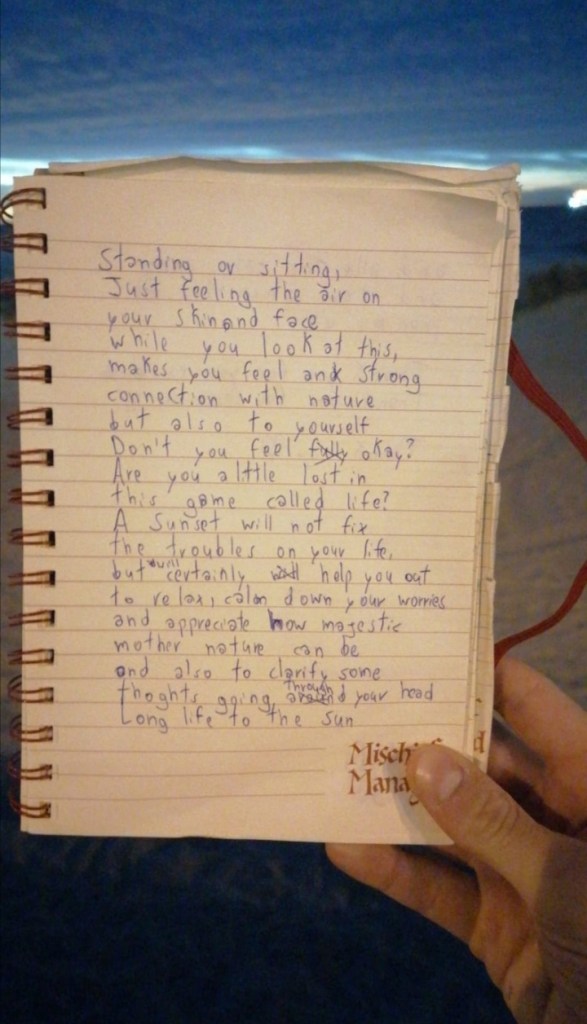 Standing or sitting,
Just feeling the air on
your skin and face
while you look at this,
makes you feel and strong
connection with nature
but also to yourself
Don't you feel fully okay?
Are you a lttle lost in
this game called life?
A sunset will not fix
the troubles on your life,
but will certainly help you out
to relax, calm down your worries
and appreciate how majestic
mother nature can be
and also to clarify some
thoghts going through your head
Long life to the sun
Misch d
Mana